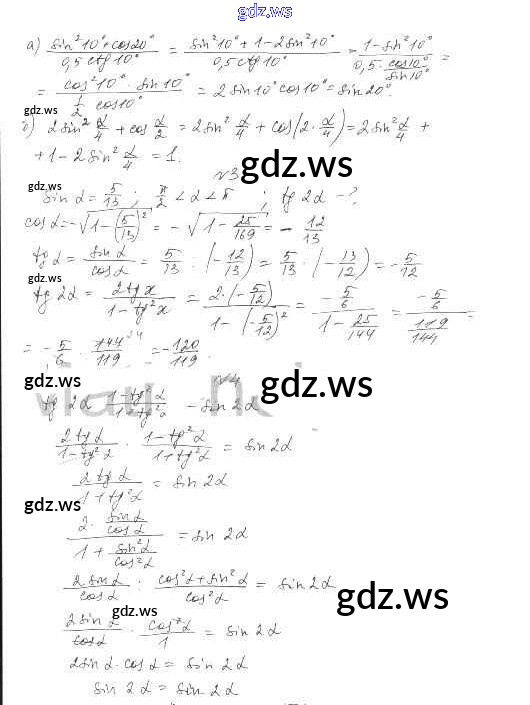 gdz.ws
а) (sin²10° + cos20°)/(0,5 ctg10°) = (sin²10° + 1 - 2sin²10°)/(0,5 ctg10°) = (1 - sin²10°)/(0,5 · cos10°/sin10°) =
= (cos²10° · sin10°)/(1/2 cos10°) = 2 sin10° cos10° = sin20°.
gdz.ws
б) 2sin² α/4 + cos α/2 = 2sin² α/4 + cos(2 · α/4) = 2sin² α/4 +
+ 1 - 2sin² α/4 = 1.
gdz.ws
√3
sin α = 5/13 ; π/2 < α < π ; tg 2α - ?
cos α = -√(1 - (5/13)²) = -√(1 - 25/169) = - 12/13
tg α = sin α/cos α = 5/13 : (-12/13) = 5/13 · (-13/12) = -5/12
gdz.ws
tg 2α = 2tg x/(1 - tg²x) = (2 · (-5/12))/(1 - (-5/12)²) = (-5/6)/(1 - 25/144) = (-5/6)/(119/144) =
= - 5/6 · 144/119 = -120/119.
√4
gdz.ws
gdz.ws
tg 2α · (1 - tg²α)/(1 + tg²α) = sin 2α
2tg α/(1 - tg²α) · (1 - tg²α)/(1 + tg²α) = sin 2α
2tg α/(1 + tg²α) = sin 2α
gdz.ws
(2 · sin α/cos α)/(1 + sin²α/cos²α) = sin 2α
2 sin α/cos α : (cos²α + sin²α)/cos²α = sin 2α
gdz.ws
gdz.ws
2 sin α/cos α · cos²α/1 = sin 2α
2 sin α · cos α = sin 2α
sin 2α = sin 2α